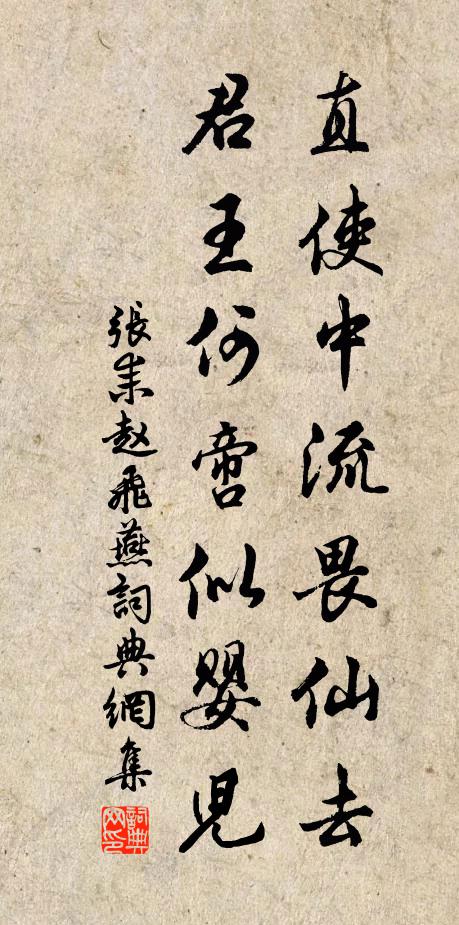 直使中流畏仙去
君王何啻似嬰兒
張耒趙飛燕詞典網集
詞典网印